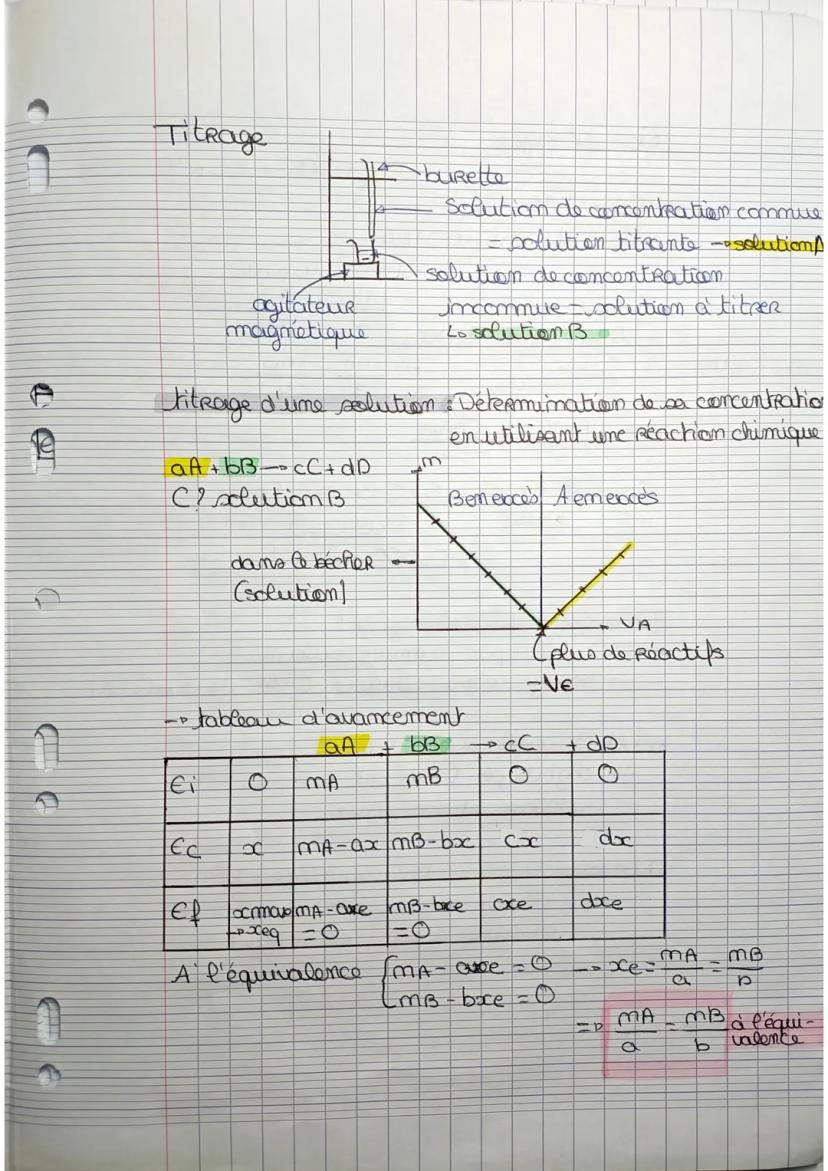 Titrage
burette
solution de concentration connue
= solution titrante → solution A
solution de concentration
inconnue = solution à titrer
↳ solution B
agitateur
magnétique
titrage d'une solution : Détermination de sa concentratio
en utilisant une réaction chimique
aA + bB → cC + dD
C? solution B
n
B en excès
A en excès
dans le bécher
(solution)
VA
(plus de réactifs
= VE
→ tableau d'avancement
aA + bB → cC + dD
Ei 0 nA nB 0 0
Ec x nA-ax nB-bx cx dx
Ef xmax nA-axe nB-bxe cxe dxe
→ xeq = 0 = 0
A l'équivalence { nA - axe = 0 → xe = nA/a = nB/b
nB - bxe = 0
=> nA/a = nB/b à l'équi-
valence